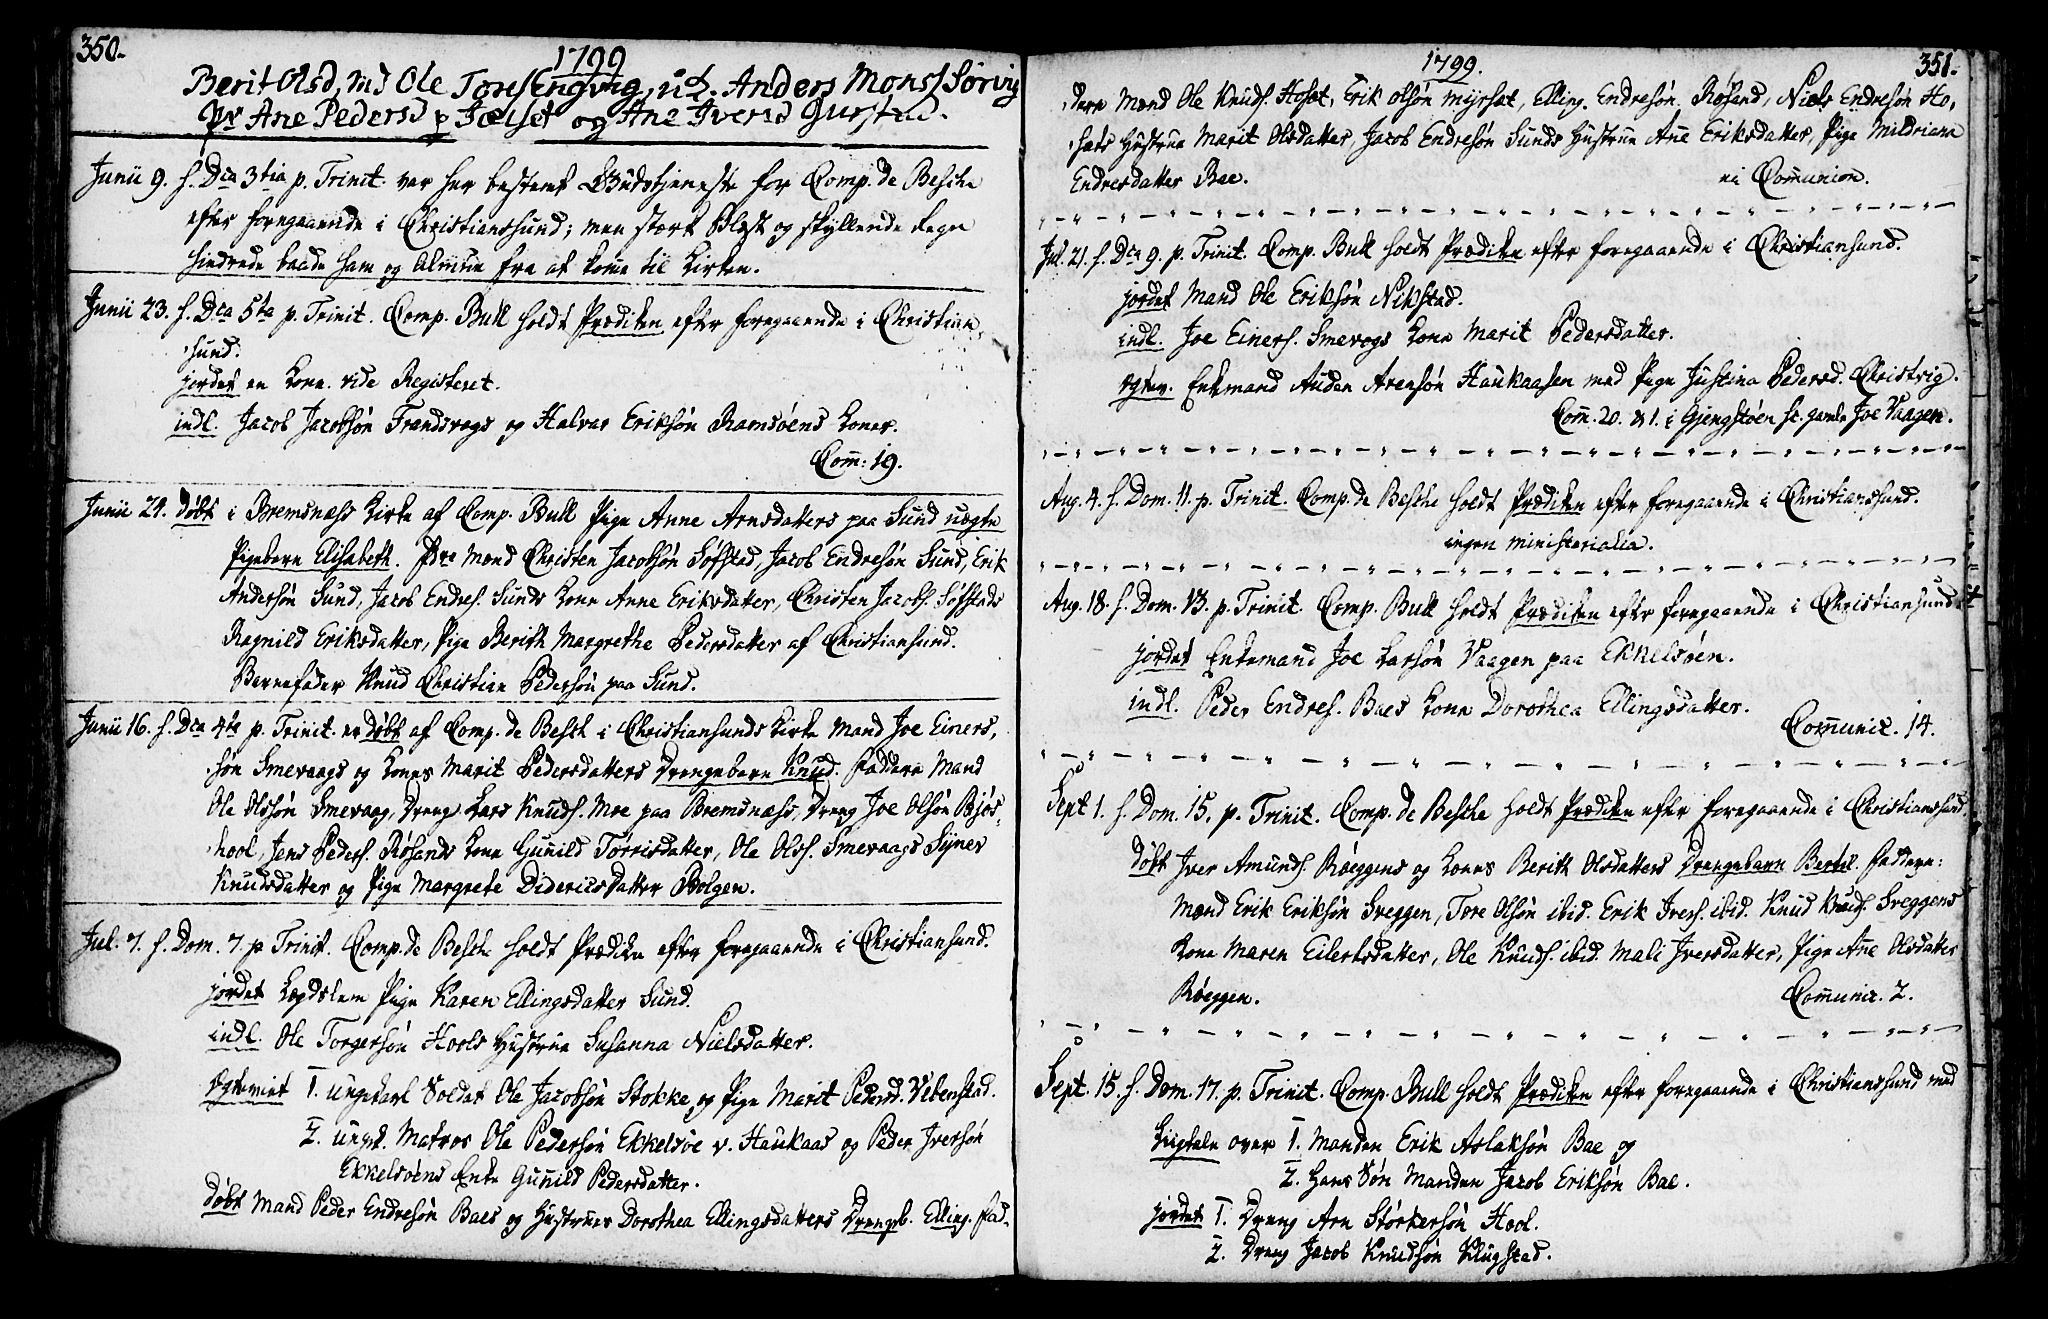 350.
1799
Berit Olsd, md Ole Tores Engvig, ud. Anders Mons. Söring
Pr Ane Pedersd p Jælset og Ane Ivers Gurstad.
Junii 9. f. Dca 3tia p. Trinit. var her bestemt Gudstjeneste for Comp. de Besche
efter foregaaende i Christianssund; men stærk Blæst og skyllende Regn
hindrede baade ham og Almue fra at komme til Kirken.
Junii 23. f. Dca 5ta p. Trinit. Comp. Bull holdt Prædiken efter foregaaende i Christian-
sund.
jordet en Kone. vide Registeret.
indl. Jacob Jacobsön Frandsvogs og Halvar Eriksön Ramsöens Koner.
Com: 19.
Junii 24. Döbt i Bremsnæss Kirke af Comp. Bull Pige Anne Arnsdatters paa Sund uægte
Pigebarn Elisabeth. Fdre Mænd Christen Jacobsön Söfstad, Jacob Endresön Sund, Erik
Andersön Sund, Jacob Endres. Sunds Kone Anne Eriksdatter, Christen Jacobs. Söfstads
Ragnild Eriksdatter, Pige Berith Margrethe Pedersdatter af Christiansund.
Barnefader Knud Christian Pedersön paa Sund.
Junii 16. f. Dca 4ta p. Trinit. er Döbt af Comp. de Besch i Christiansunds Kirke Mand Joe Einers,
sön Smevaags og Kones Marit Pedersdatters Drengebarn Knud. Faddere Mand
Ole Olssön Smevaag, Dreng Lars Knuds. Moe paa Bremsnæss, Dreng Joe Olsön Bjös-
hool, Jens Peders. Rösands Kone Gunild Torrisdatter, Ole Olss. Smevaags Synev
Knudsdatter og Pige Margrete Didericsdatter Bolgen.
Jul. 7. f. Dom. 7. p Trinit. Comp. de Besche holdt Prædiken efter foregaaende i Christiansund.
jordet Lægdslem Pige Karen Ellingsdatter Sund.
indl. Ole Torgersön Hools Hustrue Susanna Nielsdatter.
Egteviet 1. Ungekarl Soldat Ole Jacobsön Stokke og Pige Marit Pedersd. Vebenstad.
2. Ungk. Matros Ole Pedersön Ekkelsöe v. Haukaas og Peder Iversön
Ekkelsöens Enke Gunild Pedersdatter.
Döbt Mand Peder Endresön Baes og Hustrues Dorothea Ellingsdatters Drengeb. Elling. Fad-
1799.
351.
dere Mænd Ole Knuds. Hosæt, Erik Olsön Myrsæt, Elling Endresön Rösand, Niels Endresön Ho-
sæts Hustrue Marit Olsdatter, Jacob Endresön Sunds Hustrue Ane Eriksdatter, Pige Mildriann
Endresdatter Bae.
ei Communion.
Jul. 21. f. Dca 9. p. Trinit. Comp. Bull holdt Prædiken efter foregaaende i Christiansund.
jordet Mand Ole Eriksön Nikstad.
indl. Joe Einers. Smevogs Kone Marit Pedersdatter.
Egtev. Enkemand Auden Arensön Haukaasen med Pige Justina Pedersd. Christvig.
Com. 20. & 1. i Gjengstöen sc. gamle Joe Vaagen.
Aug. 4. f. Dom. 11. p. Trinit. Comp. de Besche holdt Prædiken efter foregaaende i Christianssund.
ingen ministerialia.
Aug. 18. f. Dom. 13. p. Trinit. Comp. Bull holdt Prædiken efter foregaaende i Christiansund
jordet Enkemand Joe Larsön Vaagen paa Ekkelsöen.
indl. Peder Endres. Baes Kone Dorothea Ellingsdatter.
Communic. 14.
Sept. 1. f. Dom. 15. p. Trinit. Comp. de Besche holdt Prædiken efter foregaaende i Christianssund,
Döbt Iver Amunds. Röeggens og Kones Berith Olsdatters Drengebarn Bertel. Faddere:
Mænd Erik Eriksön Sveggen, Tore Olsön ibid. Erik Ivers. ibid. Knud Knuds. Sveggens
Kone Maren Eilertsdatter, Ole Knuds. ibid. Mali Iversdatter, Pige Ane Olsdatter
Röeggen.
Communic. 2.
Sept. 15. f. Dom. 17. p. Trinit. Comp. Bull holdt Prædiken efter foregaaende i Christianssund med
Liigtale over 1. Manden Erik Aslaksön Bae og
2. Hans Sön Manden Jacob Eriksön Bae.
jordet 1. Dreng Arn Störkersön Hool.
2. Dreng Jacob Knudsön Klugstad.